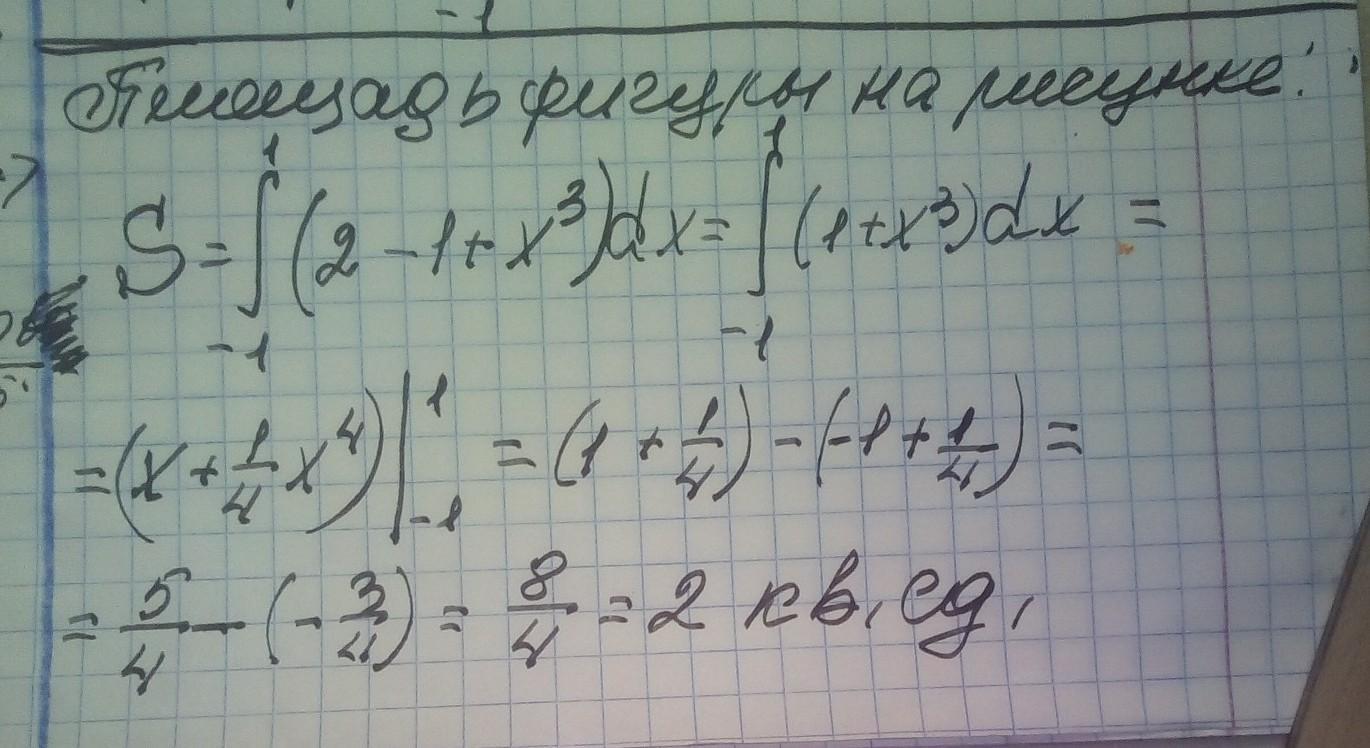 -1
Площадь фигуры на рисунке:
S = ∫₋₁¹ (2 - 1 + x³)dx = ∫₋₁¹ (1 + x³)dx =
= (x + 1/4 x⁴)|₋₁¹ = (1 + 1/4) - (-1 + 1/4) =
= 5/4 - (-3/4) = 8/4 = 2 кв. ед.